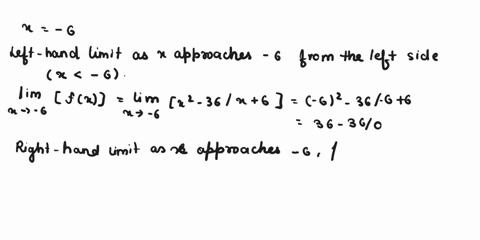 x = -6
Left-hand limit as x approaches -6 from the left side
(x < -6).
lim x→-6 [f(x)] = lim x→-6 [x²-36/x+6] = (-6)²-36/-6+6
= 36-36/0
Right-hand limit as x approaches -6,